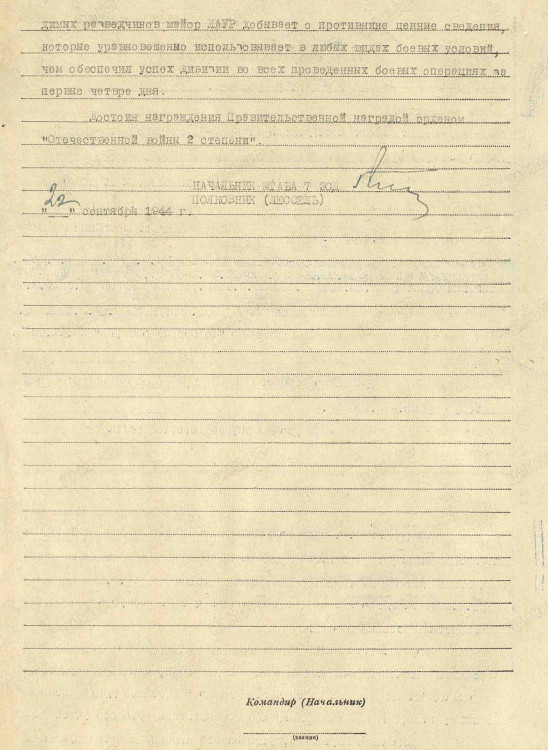 димых разведчиков майор ЛАУР добывает о противнике ценные сведения,
которые уравновешенно использовывает в любых видах боевых условий,
чем обеспечил успех дивизии во всех проведенных боевых операциях за
первые четвре дня.
Достоин награждения Правительственной наградой орденом
"Отечественной войны 2 степени".
НАЧАЛЬНИК ШТАБА 7 ЭСД
ПОЛКОВНИК
"22" сентября 1944 г.
Командир (Начальник)
(звание)